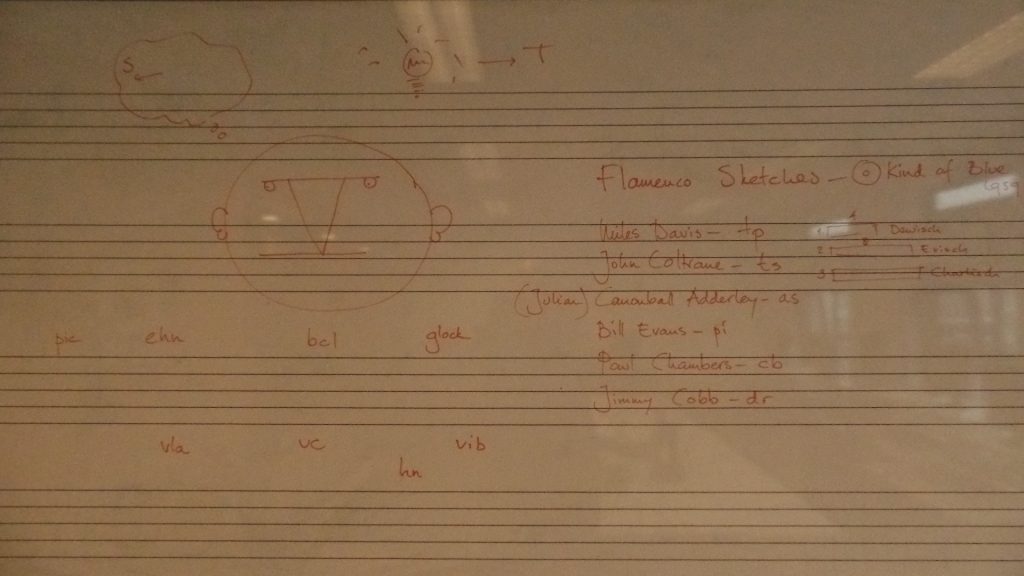 S
T
Flamenco Sketches - Kind of Blue
1959
Miles Davis - tp
John Coltrane - ts
(Julian) Canonball Adderley - as
Bill Evans - pi
Paul Chambers - cb
Jimmy Cobb - dr
1
2
3
pic ehn bcl glock
vla vc vib
hn